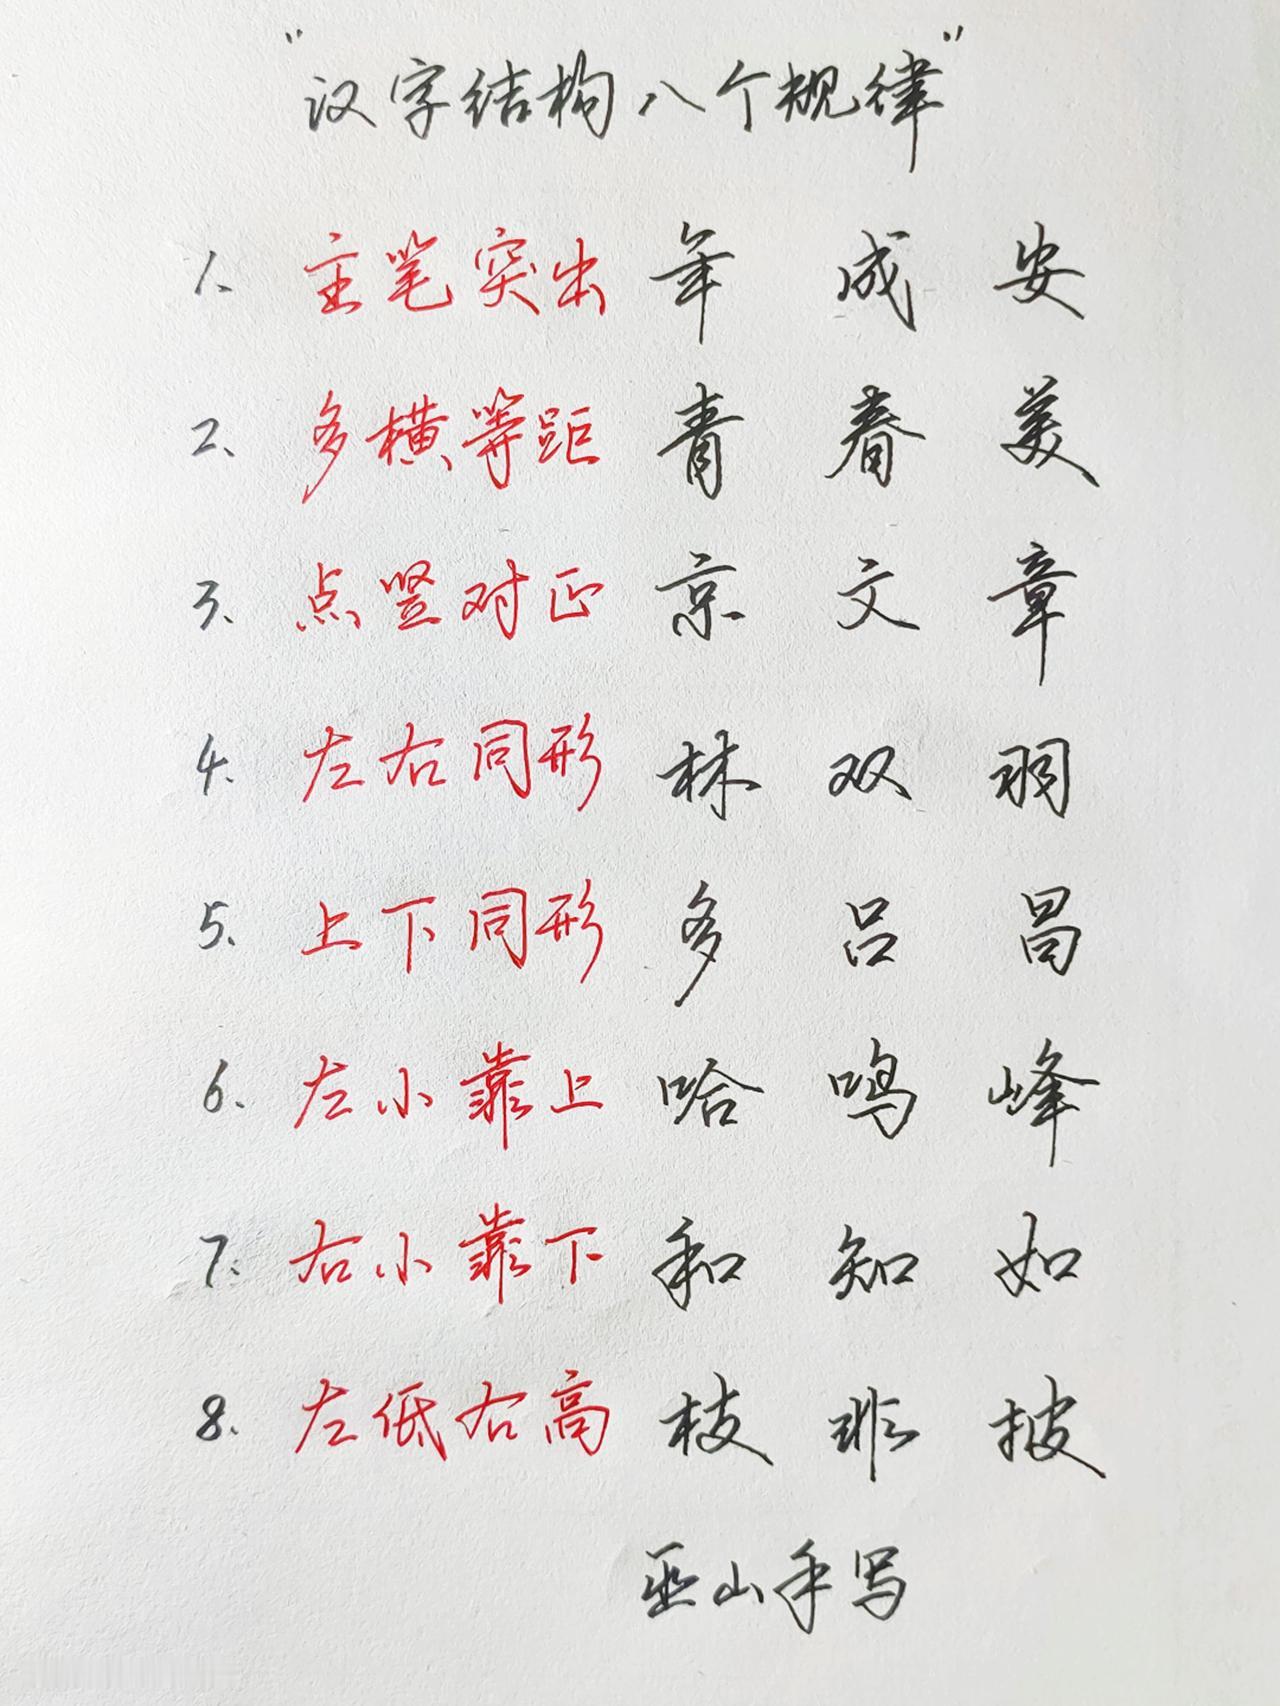 “汉字结构八个规律”
1、主笔突出 年 成 安
2、多横等距 青 春 美
3、点竖对正 京 文 章
4、左右同形 林 双 羽
5、上下同形 多 吕 昌
6、左小靠上 哈 鸣 峰
7、右小靠下 和 知 如
8、左低右高 枝 邢 披
巫山手写